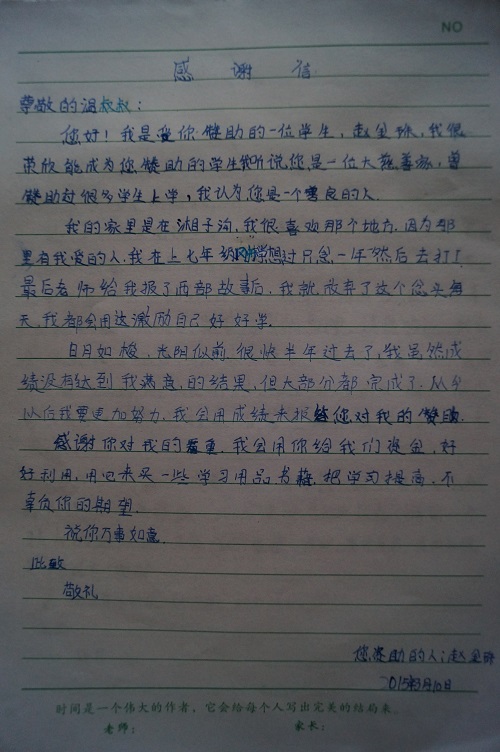 NO
感谢信
尊敬的温叔叔：
您好！我是受你赞助的一位学生，赵金珠，我很
荣欣能成为您赞助的学生听说您是一位大慈善家，曾
赞助过很多学生上学，我认为您是一个善良的人.
我的家里是在湘子沟，我很喜欢那个地方.因为那
里有我爱的人.我在上七年级时常想过只念一年然后去打工
最后老师给我报了西部故事后，我就放弃了这个念头每
天.我都会用这激励自己好好学.
日月如梭，光阴似箭，很快半年过去了，我虽然成
绩没有达到我满意的结果，但大部分都完成了.从今
以后我要更加努力.我会用成绩来报答您对我的赞助.
感谢你对我的看重.我会用你给我们资金，好
好利用，用它来买一些学习用品书籍.把学习提高，不
辜负你的期望.
祝你万事如意
此致
敬礼
您赞助的人：赵金珠
2015年3月10日
时间是一个伟大的作者，它会给每个人写出完美的结局来。
老师：　家长：